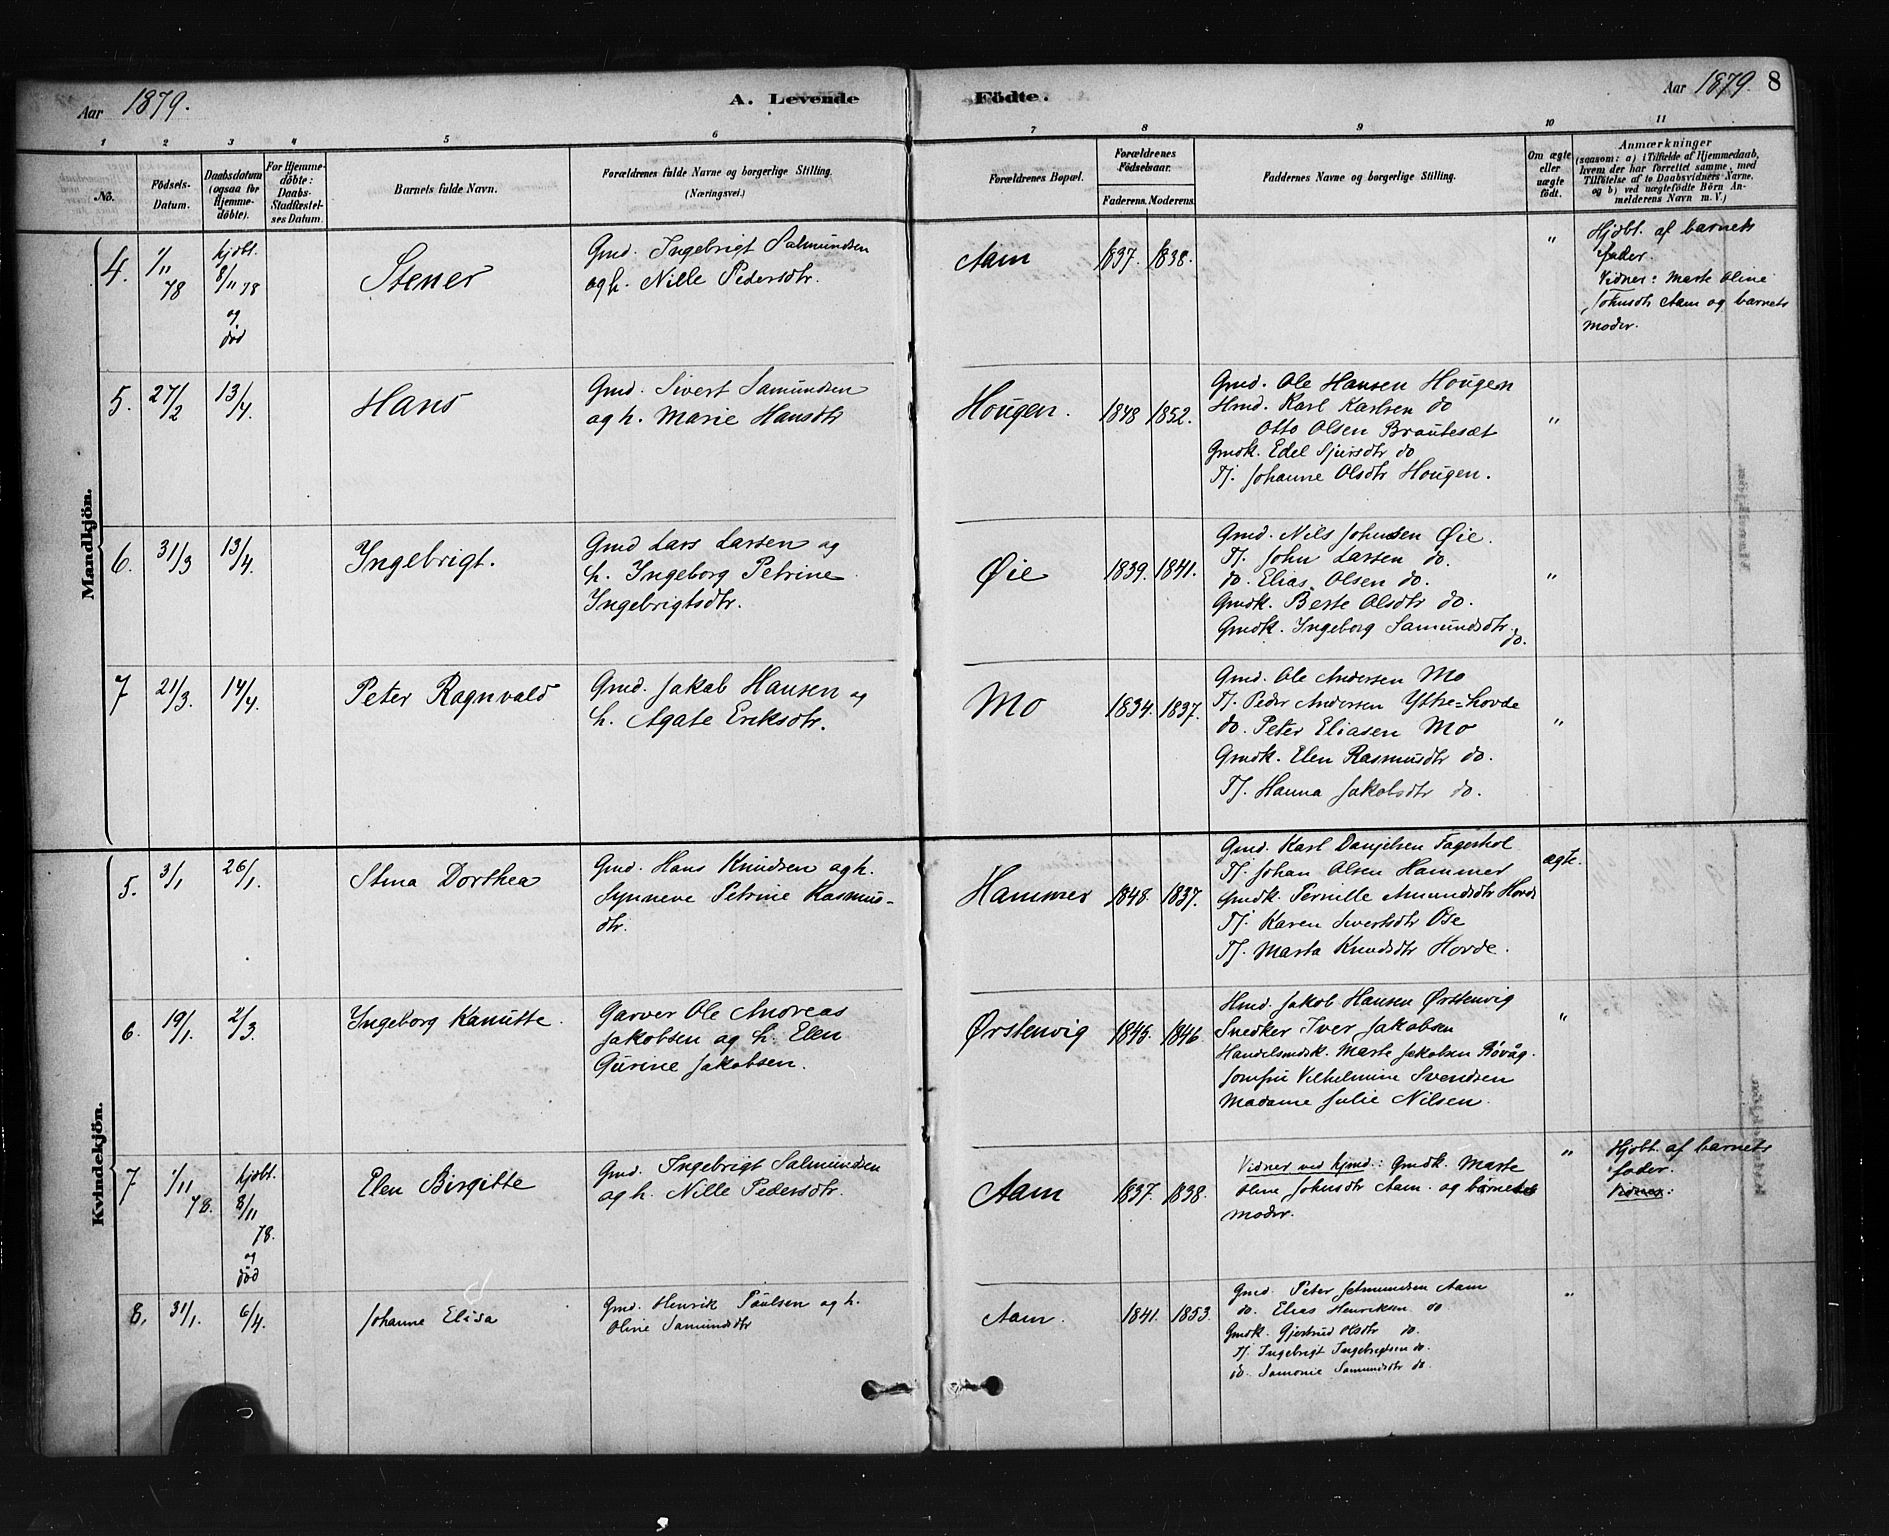 Aar 1879.
A. Levende
Födte.
Aar 1879.
8
1 2 3 4 5 6 7 8 9 10 11
No.
Födsels-Datum.
Daabsdatum (ogsaa for Hjemme-döbte).
For Hjemme-döbte: Daabs-Stadfæstel-ses Datum.
Barnets fulde Navn.
Forældrenes fulde Navne og borgerlige Stilling. (Næringsvei.)
Forældrenes Bopæl.
Forældrenes Födselsaar.
Faderens. Moderens.
Faddernes Navne og borgerlige Stilling.
Om ægte eller uægte födt.
Anmærkninger
(saasom: a) i Tilfælde af Hjemmedaab,
hvem der har forrettet samme, med
Tilföielse af to Daabsvidners Navne,
og b) ved uægtefödte Börn An-
melderens Navn m. V.)
Mandkjön.
4. 1/11 78 hjdbt. 8/11 78 og død
Stener
Gmd. Ingebrigt Salmundsen
og h. Nille Pedersdtr.
Aam 1837. 1838. "
Hjdbt. af barnets
fader.
Vidner: Marte Oline
Johnsdtr Aam og barnets
moder.
5. 27/2 13/4.
Hans
Gmd. Sivert Samundsen
og h. Marie Hansdtr
Hougen. 1848 1852.
Gmd. Ole Hansen Hougen
Hmd. Karl Karlsen do
Otto Olsen Brautesæt
Gmdk. Edel Sjursdtr do
Tj. Johanne Olsdtr Hougen.
"
6. 31/3 13/4.
Ingebrigt.
Gmd Lars Larsen og
h. Ingeborg Petrine
Ingebrigtsdtr.
Øie 1839. 1841.
Gmd. Nils Johnsen Øie.
Tj. John Larsen do.
do. Elias Olsen do.
Gmdk. Berte Olsdtr do.
Gmdk. Ingeborg Samundsdtr do.
"
7 21/3. 14/4.
Peter Ragnvald
Gmd. Jakob Hansen og
h. Agate Eriksdtr.
Mo 1834. 1837.
Gmd. Ole Andersen Mo
Tj. Peder Andersen Ytre-hovde
do. Peter Eliasen Mo
Gmdk. Elen Rasmusdtr do.
Tj. Hanna Jakobsdtr do.
"
Kvindekjön.
5. 3/1 26/1.
Stina Dorthea
Gmd. Hans Knudsen og h.
Synneve Petrine Rasmus-
dtr.
Hammer 1848. 1837.
Gmd. Karl Danjelsen Fagerhol
Tj. Johan Olsen Hammer
Gmdk. Pernille Amundsdtr Hovde
Tj. Karen Sivertsdtr Ose
Tj. Marta Knudsdtr Hovde.
ægte.
6. 19/1. 2/3.
Ingeborg Kanutte.
Garver Ole Andreas
Jakobsen og h. Elen
Gurine Jakobsen.
Ørstenvig 1845. 1846.
Hmd. Jakob Hansen Ørstenvig
Snedker Iver Jakobsen
Handelsmdsk. Marte Jakobsen Røvåg.
Jomfru Vilhelmine Svendsen
Madame Julie Nilsen.
"
7 1/11 78. hjdbt. 8/11 78. og død
Elen Birgitte
Gmd. Ingebrigt Salmundsen
og h. Nille Pedersdtr.
Aam 1837. 1838.
Vidner ved hjmd.: Gmdk. Marte
Oline Johnsdtr Aam. og barnets
moder.
"
Hjdbt. af barnets
fader.
Vidner:
8. 31/1. 6/4.
Johanne Elisa
Gmd. Henrik Paulsen og h.
Oline Samundsdtr
Aam. 1841. 1853.
Gmd. Peter Salmundsen Aam
do. Elias Henriksen do
Gmdk. Gjertrud Olsdtr do.
Tj. Ingebrigt Ingebrigtsen do.
do. Samonie Samundsdtr do.
"